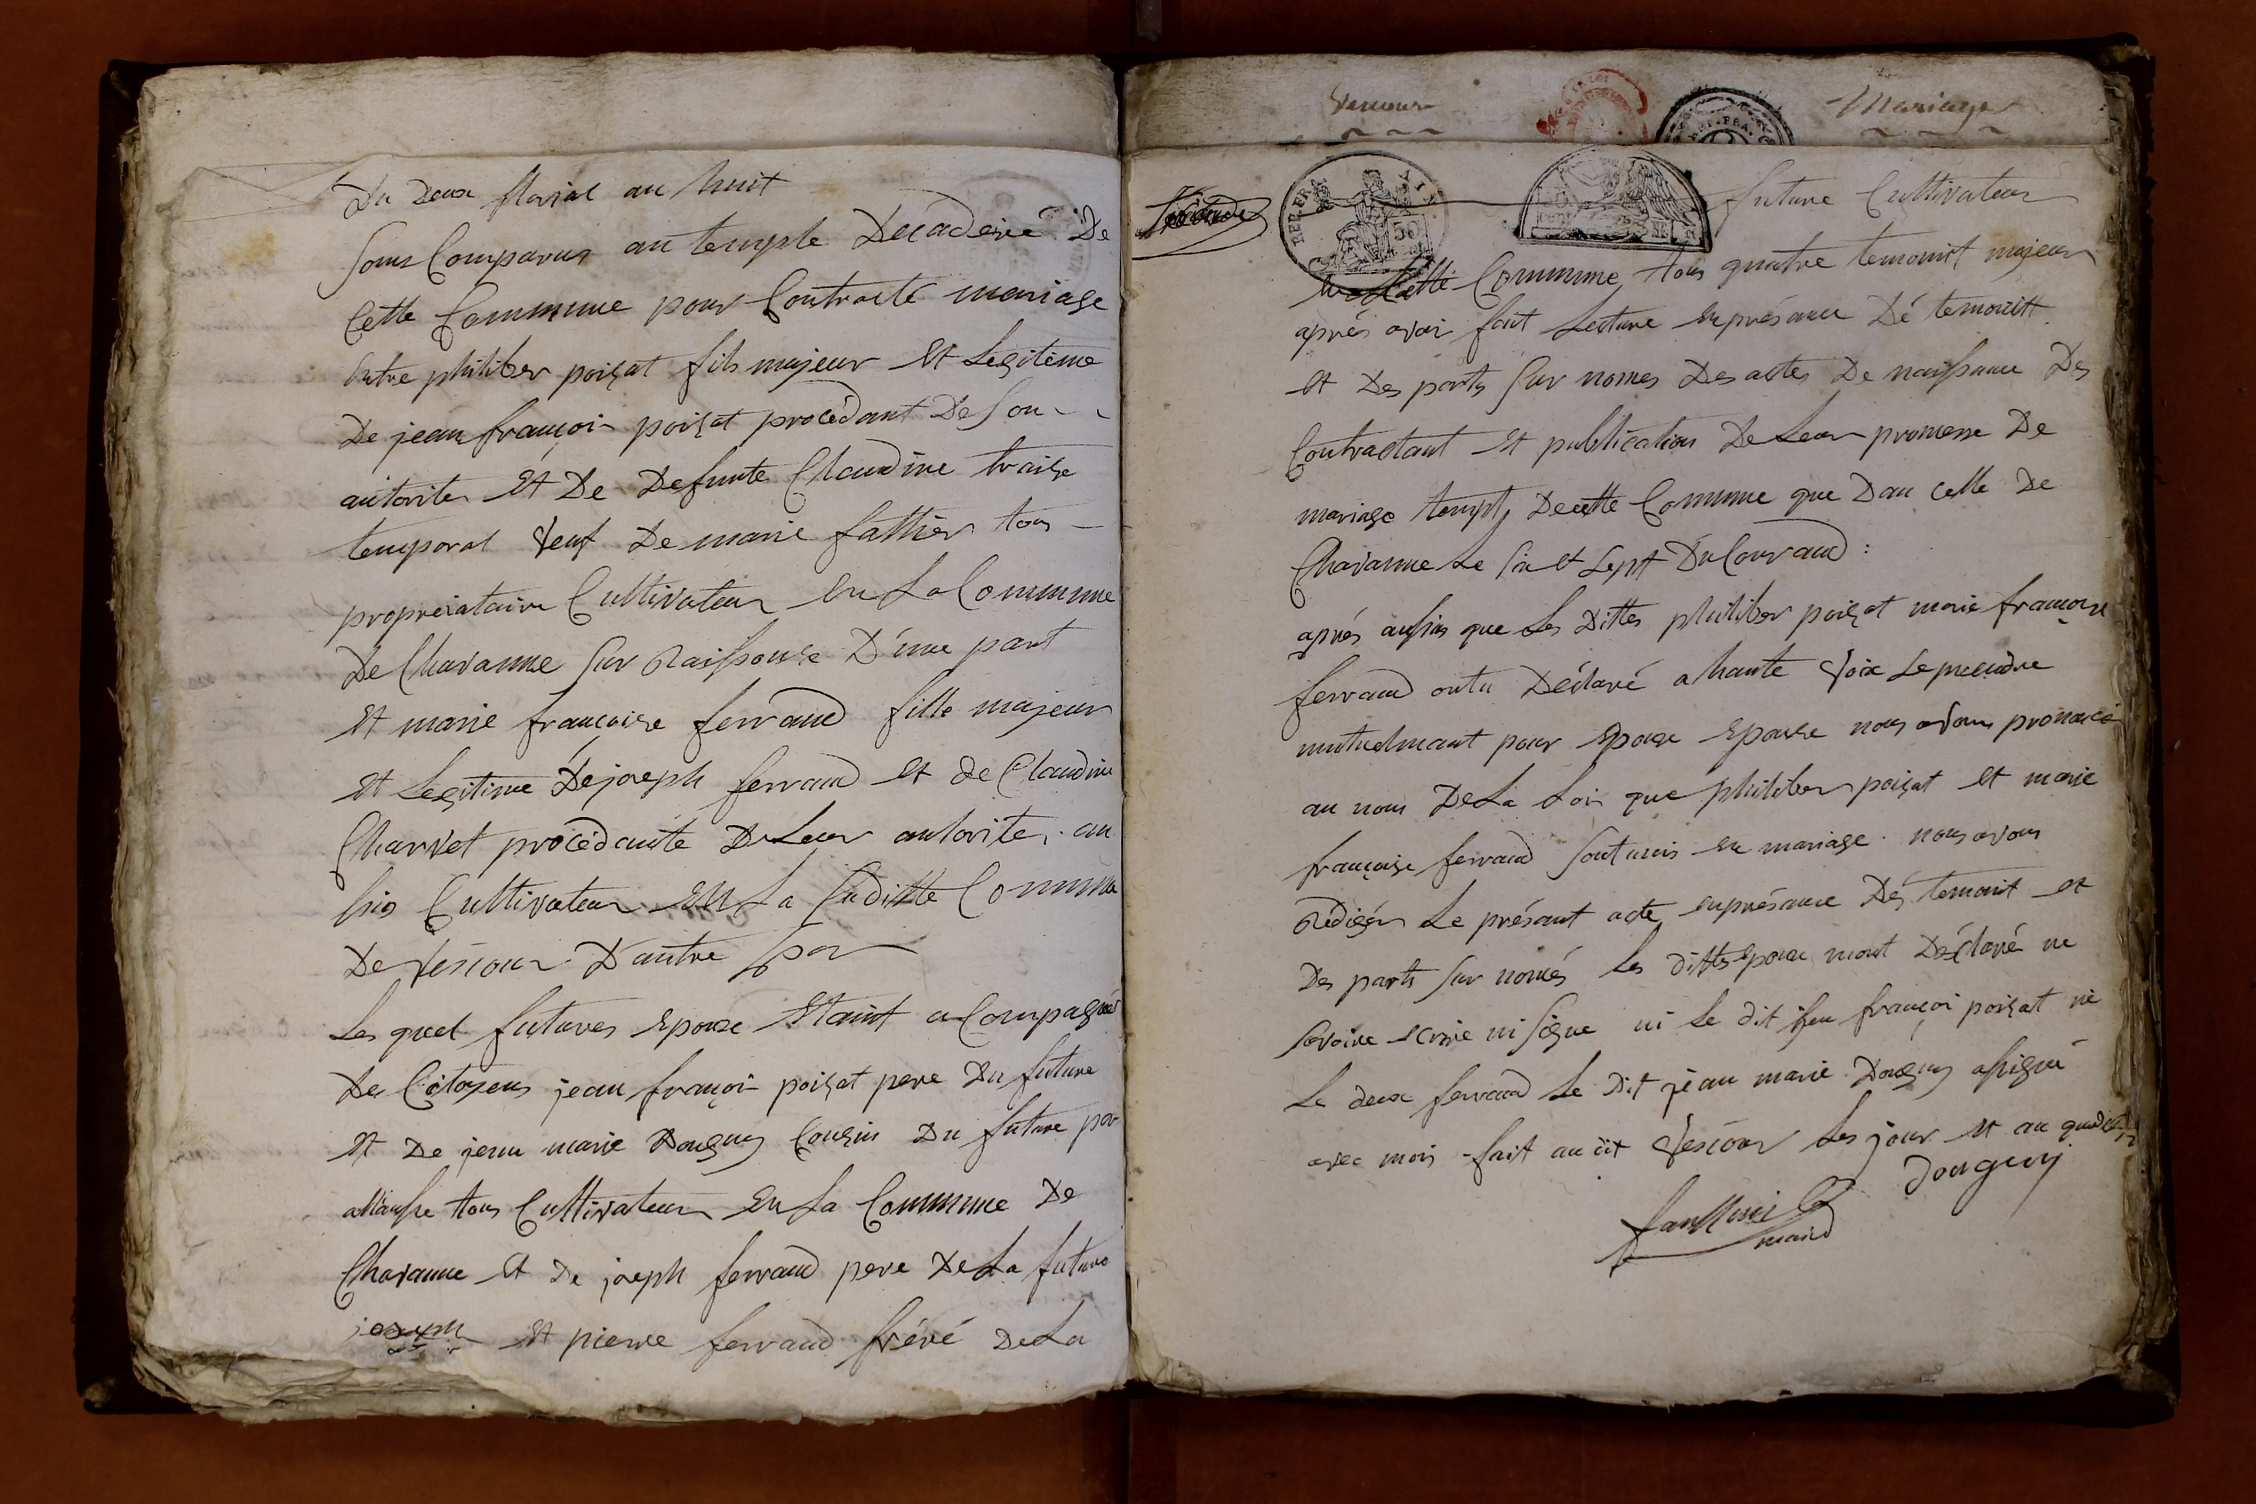 Du deux floréal an huit
Sons Comparus au temple Decadeire De
Cette Commune pour Contracté mariage
Entre philiber poisat fils majeur Et Legitime
De jean françoi poisat procédant De son
autorites Et De Defunte Claudine
temporal veuf De marie fattier tous
propreiataire Cultivateur En La Commune
De Chavanne sur Raissouse D'une part
Et marie françoise ferraud fille majeur
Et Legitime De joseph ferraud et de Claudine
Charvet procédante De Leur autorite au
Cultivateur En La suditte Commune
De vescour D'autre par
Les quel futures Epoux Etaint acompagnés
Des Citoyens jean françoi poisat pere Du future
Et De jean marie Donguy Cousin Du future par
alliansse tous Cultivateur En La Commune De
Chavanne Et De joseph ferraud pere De La future
Et pierre ferraud fréré De La
Vescour
Mariage
REP. FRA.
50
future Cultivateur
En Cette Commune tous quatre temoint majeur
aprés avoir fait Lecture En présance Dé temoint
Et Des parts sur nomes Des actes De naissance Des
Contractant Et publication De Leur promesse De
mariage De cette Comune que Dan celle De
Chavanne Le six et sept Du Couraud :
aprés aussis que Les Dittes philiber poisat marie françoise
ferraud ontu Déclaré a haute voix Se prendre
mutuelmant pour Epoux Epouse nous avons prononcé
au nom De La Loi que philiber poisat Et marie
françoise ferraud sont unis En mariage nous avons
Rediger Le présant acte En présance Des temoint et
Des parts sur només Les dittes Epoux mont Déclaré ne
savoire Ecrire ni signe ni Le dit jean françoi poisat ni
Le deux ferraud Le Dit jean marie Donguy assigné
avec mois fait au dit vescour Les jour Et an que
donguy